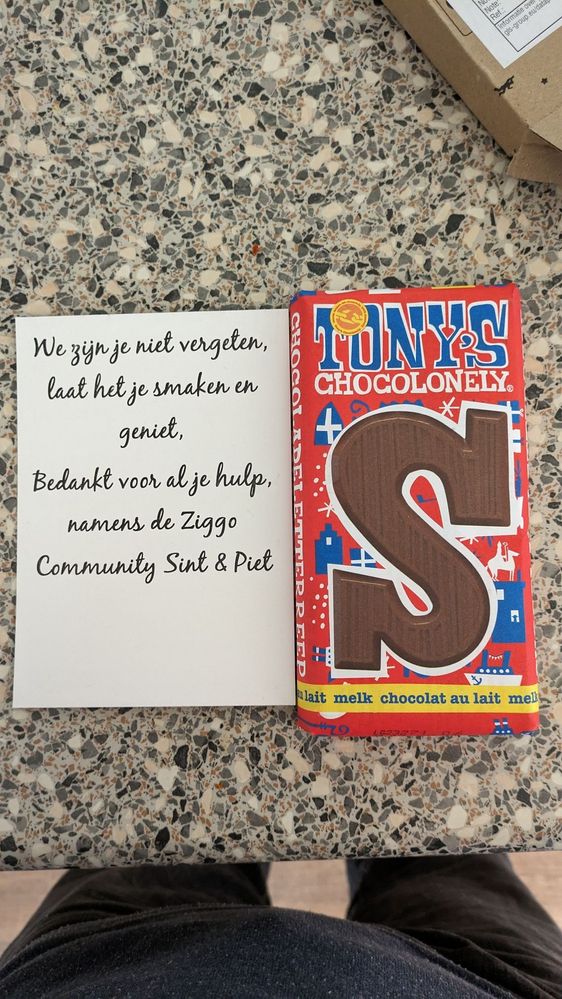 We zijn je niet vergeten,
laat het je smaken en
geniet,
Bedankt voor al je hulp,
namens de Ziggo
Community Sint & Piet
TONY'S
CHOCOLONELY
CHOCOLADELETTERREEP
S
au lait melk chocolat au lait melk
Note:
Ref.: